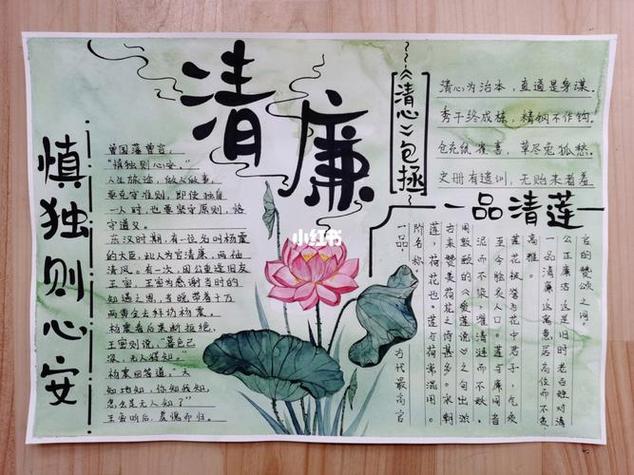 清
廉
慎独则心安
曾国藩曾言,
"慎独则心安。"
人生旅途,做人做事,
要克守准则,即使独自
一人时,也要坚守原则,恪
守道义。
东汉时期,有一位名叫杨震
的大臣,此人为官清廉,两袖
清风。有一次,因公事途旧友
王密,王密为感谢当时的
知遇之恩,当晚带着十万
两黄金去拜访杨震,
杨震看后果断拒绝,
王密则说,"暮色已
深,无人得知。"
杨震回答道,"天
知地知,你知我知,
怎么是无人知了?"
王密听后,羞愧而归。
《清心》包拯
清心为治本,直道是身谋。
秀干终成栋,精钢不作钩。
仓充鼠雀喜,草尽兔狐愁。
史册有遗训,无贻来者羞
一品清莲
官的赞颂之词。
公正廉洁,这是旧时老百姓对清
一品清廉,这寓意居高位而不贪
高雅。
莲花被誉为花中君子,
至今脍炙人口。莲与廉同音
泥而不染,濯清涟而不妖,
用敦颐的《爱莲说》之句出淤
古来赞美荷花之诗甚多。水
莲,荷花也。莲与荷常混用。
附名称。
一品:
古代最高官
小红书